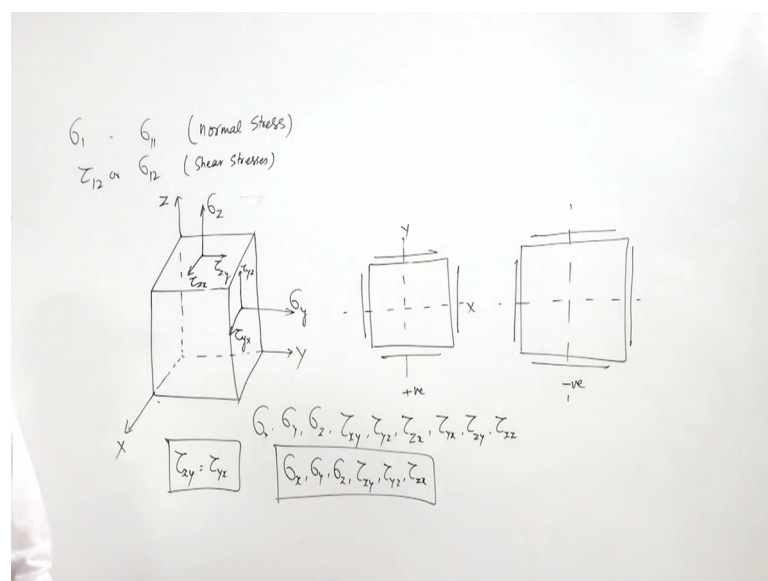 σ₁ - σ₁₁ (Normal Stress)
τ₁₂ or σ₁₂ (Shear Stresses)
Z σz
τzx τzy τyz
σy
τyx
Y
X
Y
X
+ve
-ve
σx, σy, σz, τxy, τyz, τzx, τyx, τzy, τxz
τxy = τyx
σx, σy, σz, τxy, τyz, τzx